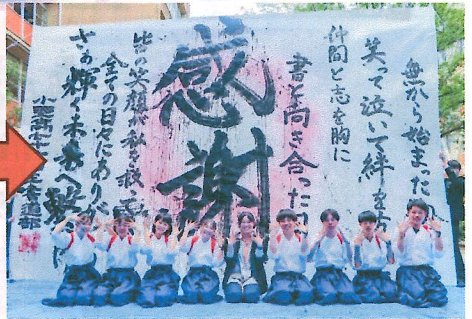 無から始まった
笑って泣いて絆を
仲間と志を胸に
書と向き合った
感謝
皆の笑顔が私を救
全ての日々にありが
さあ輝く未来へ